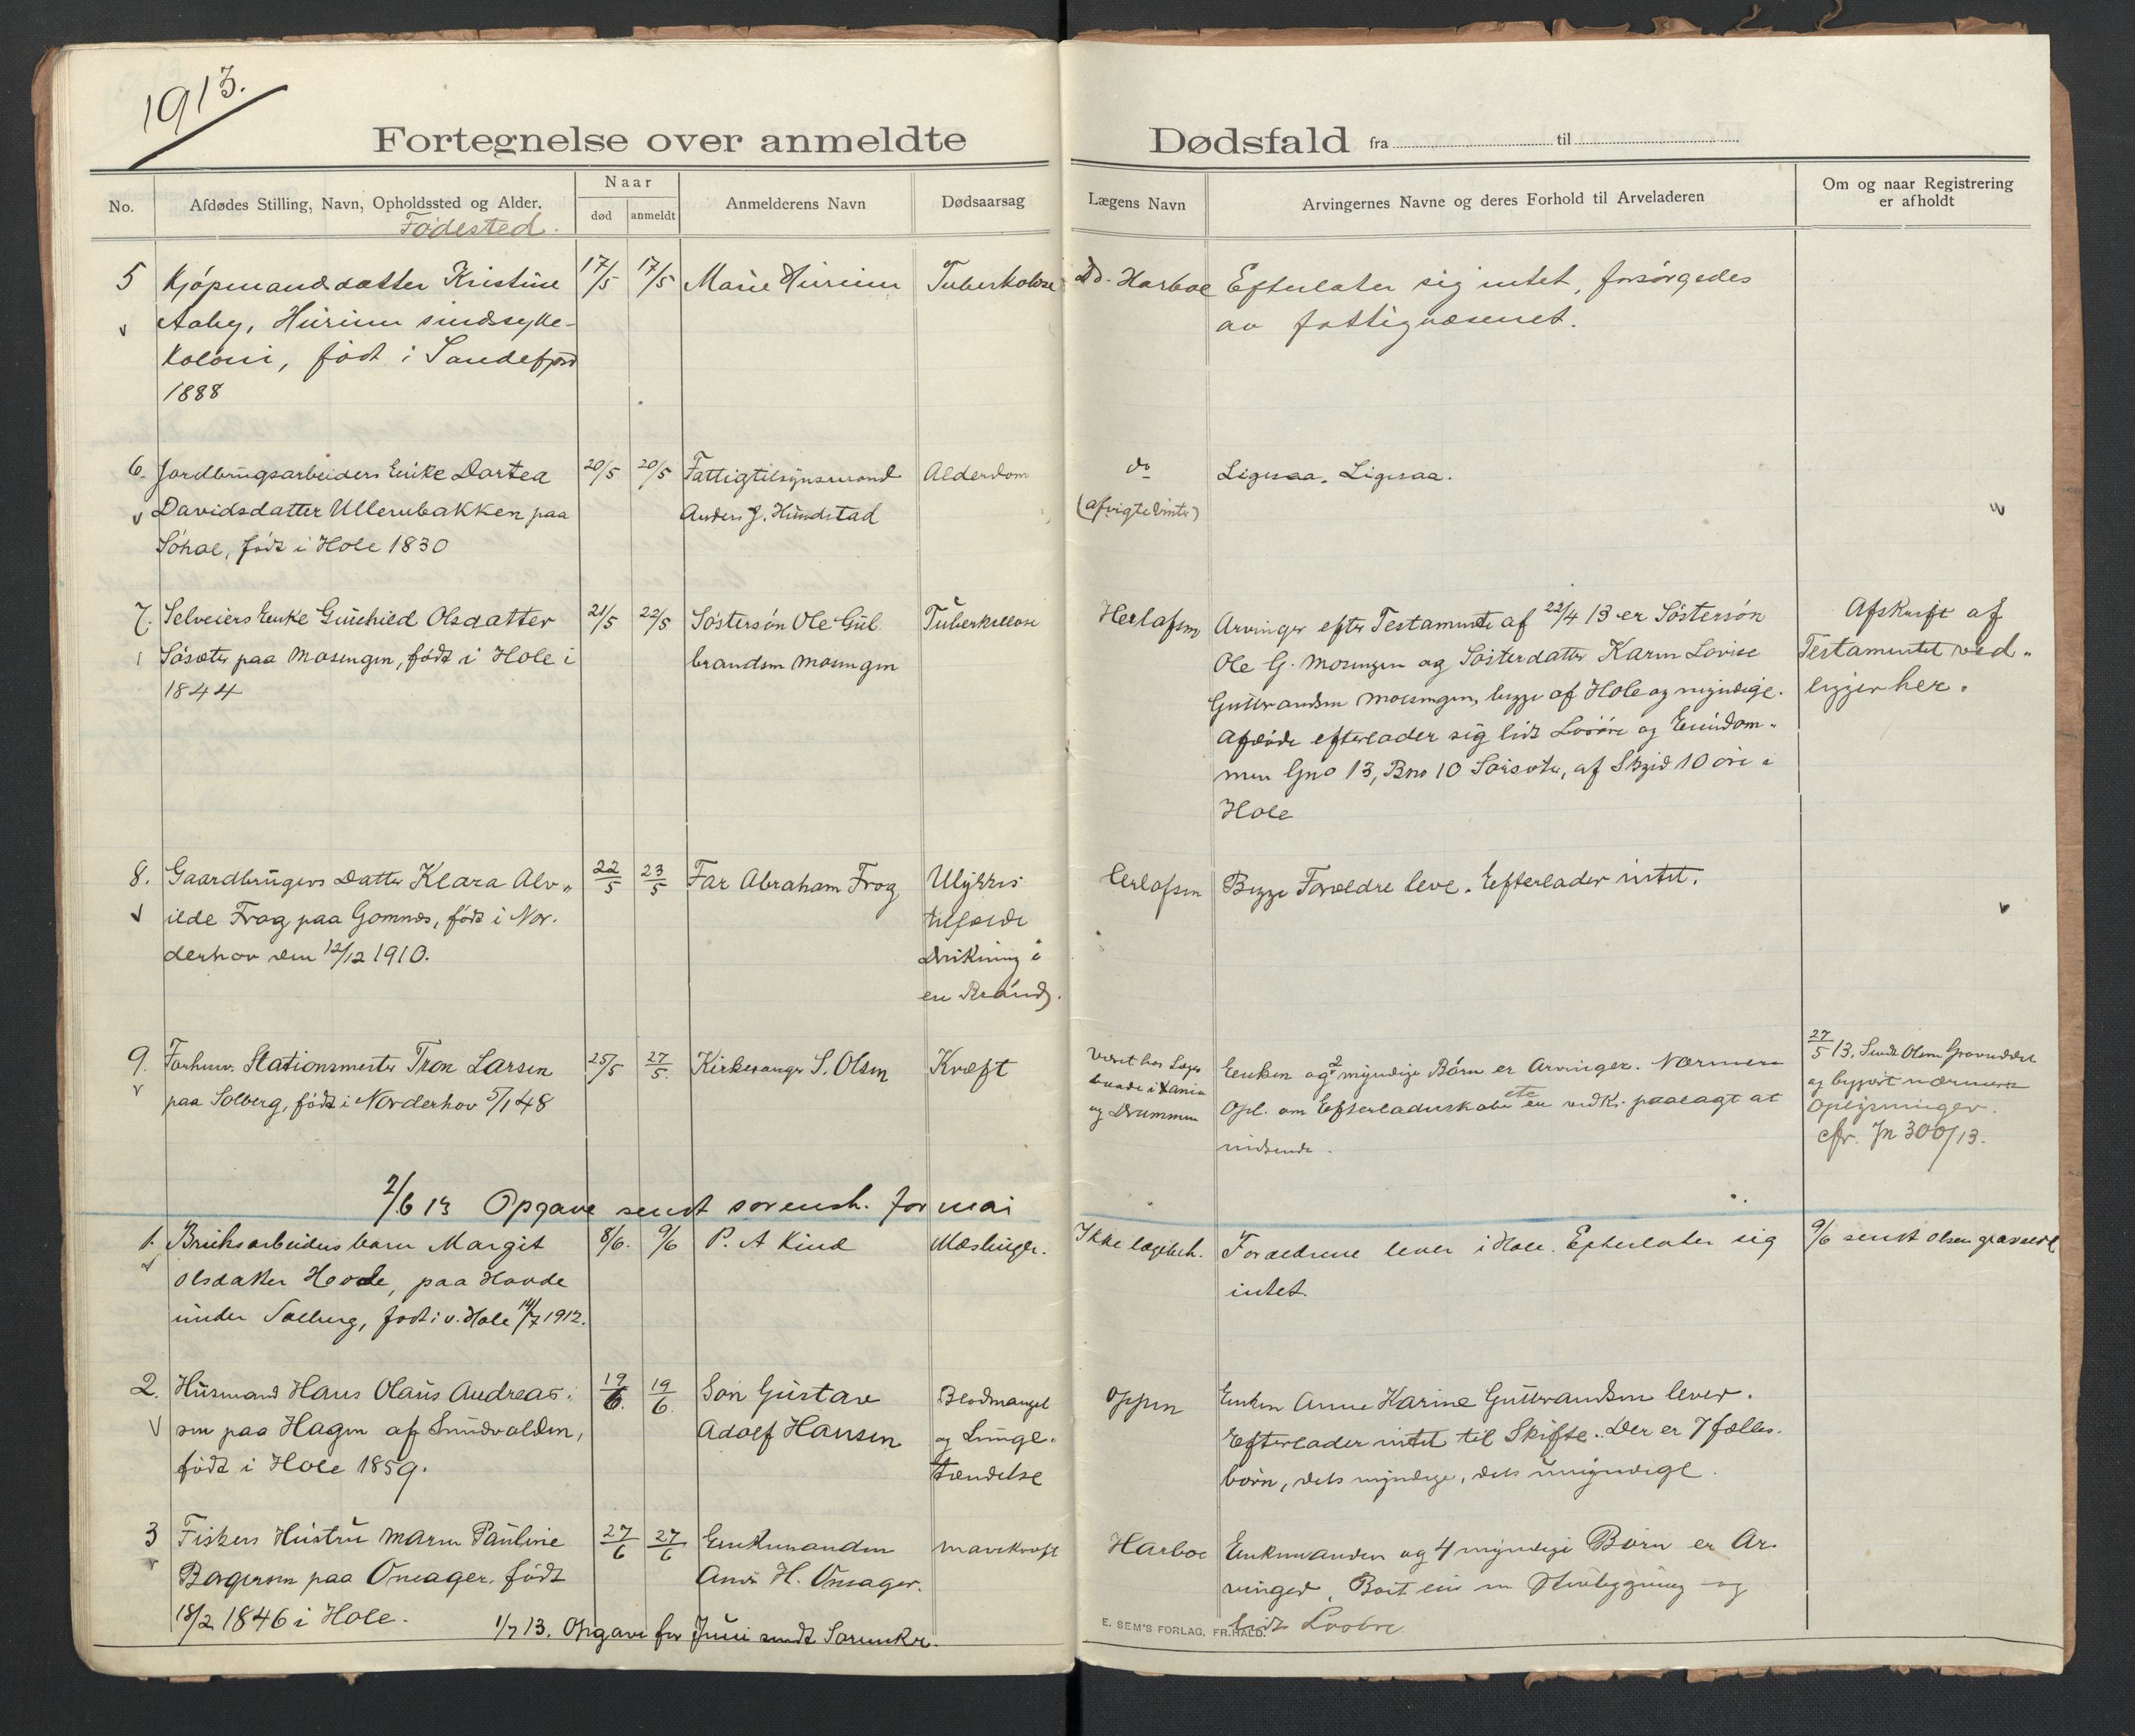 1913.
Fortegnelse over anmeldte Dødsfald fra til
No.
Afdødes Stilling, Navn, Opholdssted og Alder.
Fødested.
Naar
død
anmeldt
Anmelderens Navn
Dødsaarsag
Lægens Navn
Arvingernes Navne og deres Forhold til Arveladeren
Om og naar Registrering
er afholdt
5
Kjøpmandsdatter Kristine
Aaby, Hurum sindssyke-
koloni, født i Sandefjord
1888
17/5
17/5
Marie Hurum
Tuberkolose
Dr. Harboe
Efterlater sig intet, forsørgedes
av fattigvæsenet.
6.
Jordbrugsarbeiders Enke Dortea
Davidsdatter Ullernbakken paa
Søhol, født i Hole 1830
20/5
20/5
Fattigtilsynsmand
Anders J. Hundstad
Alderdom
do
(afvigte Vinter)
Ligesaa. Ligesaa.
7.
Selveiers Enke Gunhild Olsdatter
Søsæter paa Mosengen, født i Hole i
1844
21/5
22/5
Søstersøn Ole Gul
brandsen Mosengen
Tuberkulose
Herlofsen
Arvinger efter Testamente af 22/4 13 er Søstersøn
Ole G. Mosengen og Søsterdatter Karen Lovise
Gulbrandsen Mosengen, begge af Hole og myndige.
Afdøde efterlader sig lidt Løsøre og Eiendom-
men Gno 13, Bno 10 Sørsæter, af Skyld 10 øre i
Hole
Afskrift af
Testamentet ved-
ligger her.
8.
Gaardbrugers Datter Klara Alv-
ilde Frog paa Gomnes, født i Nor-
derhov den 12/12 1910.
22/5
23/5
Far Abraham Frog
Ulykkes
tilfælde
Drukning i
en Brønd.
Herlofsen
Begge Forældre leve. Efterlader intet.
9.
Forhenv. Stationsmester Tron Larsen
paa Solberg, født i Norderhov 5/1 48
25/5
27/5.
Kirkesanger S. Olsen
Kræft
Været hos Læger
baade i Kania
og Drammen
Enken og 2 myndige Børn er Arvinger. Nærmere
Opl. om Efterladenskaber etc er vedk. paalagt at
indsende.
27/5 13. Sendt Olsen Gravseddel
og begjært nærmere
oplysninger.
cfr. Jn 300/13.
2/6 13 Opgave sendt sorensk. for mai
1.
Bruksarbeiders barn Margit
Olsdatter Hovde, paa Hovde
under Solberg, født i v. Hole 14/7 1912.
8/6.
9/6
P. A Lind
Mæslinger.
Ikke lægebeh.
Forældrene lever i Hole. Efterlater sig
intet.
9/6 sendt Olsen gravsedl
2.
Husmand Hans Olaus Andreas-
sen paa Hagen af Sundvolden,
født i Hole 1859.
19/6.
19/6.
Søn Gustav
Adolf Hansen
Blodmangel
og Lunge-
tændelse
Oppen
Enken Anne Karine Gulbrandsen lever.
Efterlader intet til Skifte. Der er 7 fælles-
børn, dels myndige, dels umyndige.
3
Fiskers Hustru Maren Pauline
Borgersen paa Onsager, født
18/2 1846 i Hole.
27/6
27/6
Enkemanden
Anders H. Onsager.
Mavekræft
Harboe
Enkemanden og 4 myndige Børn er Ar-
vinger. Boet eier en Husbygning og
lidt Løsøre
1/7 13. Opgave for Juni sendt Sorenskr.
E. SEM'S FORLAG, FR.HALD.